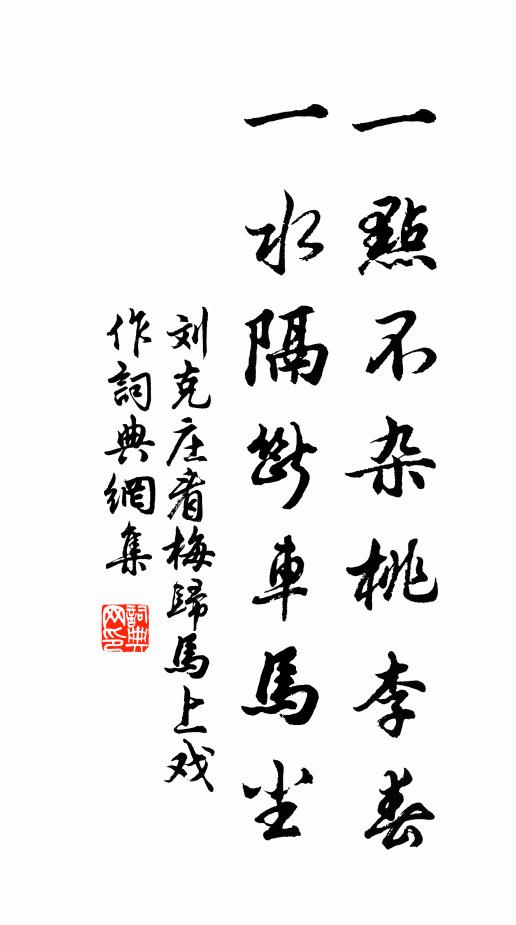 一點不杂桃李春
一水隔斷車馬尘
刘克庄看梅歸馬上戏
作詞典網集
詞典網印